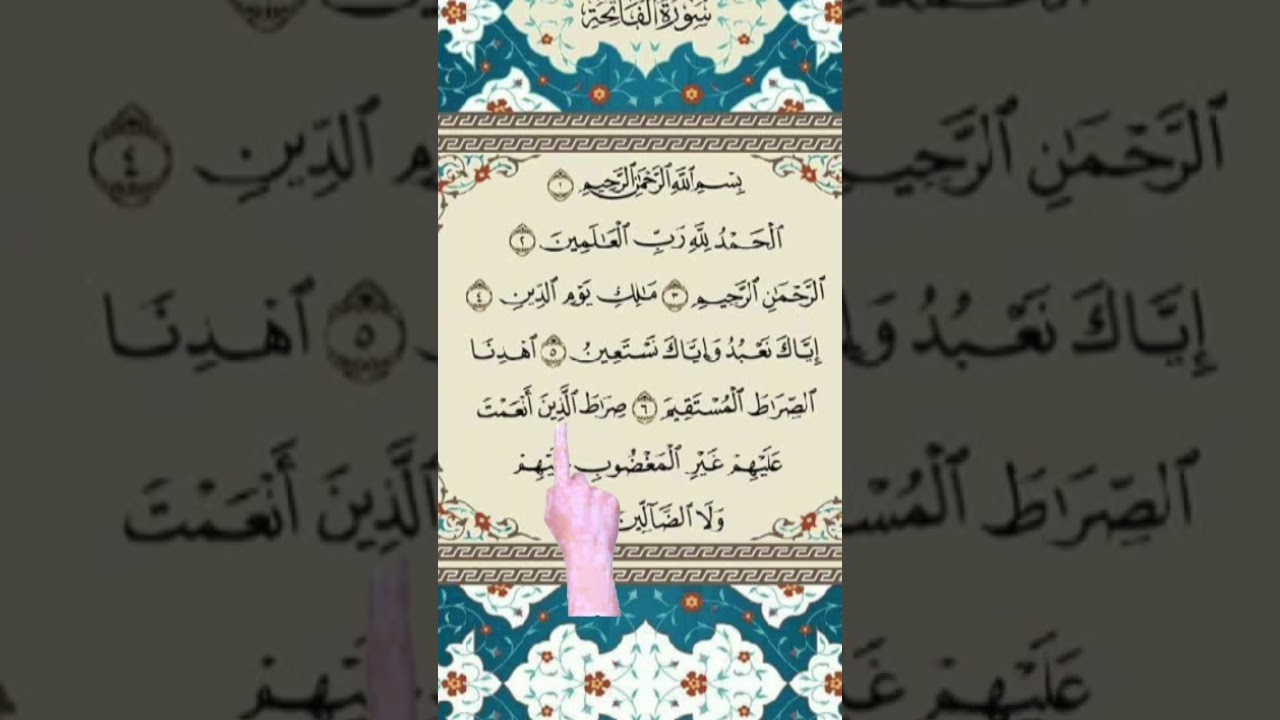 سُورَةُ الْفَاتِحَةِ
بِسْمِ ٱللَّهِ ٱلرَّحْمَٰنِ ٱلرَّحِيمِ ١
ٱلْحَمْدُ لِلَّهِ رَبِّ ٱلْعَٰلَمِينَ ٢
ٱلرَّحْمَٰنِ ٱلرَّحِيمِ ٣ مَٰلِكِ يَوْمِ ٱلدِّينِ ٤
إِيَّاكَ نَعْبُدُ وَإِيَّاكَ نَسْتَعِينُ ٥ ٱهْدِنَا
ٱلصِّرَٰطَ ٱلْمُسْتَقِيمَ ٦ صِرَٰطَ ٱلَّذِينَ أَنْعَمْتَ
عَلَيْهِمْ غَيْرِ ٱلْمَغْضُوبِ
وَلَا ٱلضَّآلِّينَ